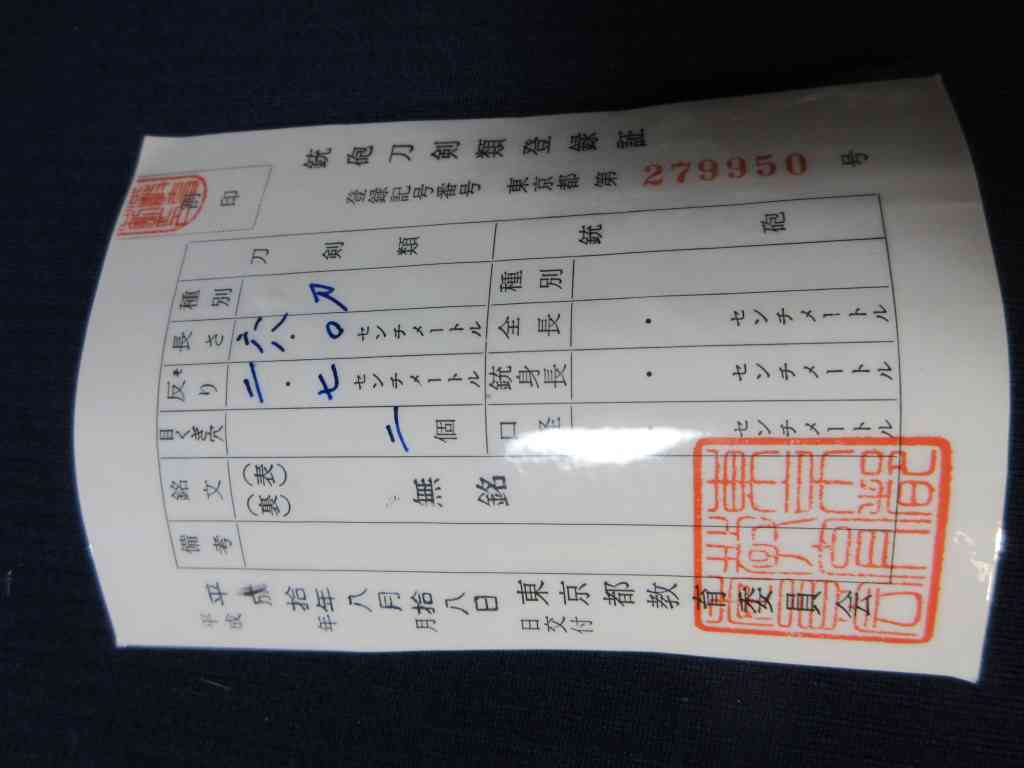 銃砲刀剣類登録証
登録記号番号 東京都 第 279950 号
再 印
刀剣類
種別 刀
長さ 六八・〇 センチメートル
反り そ 二・七 センチメートル
目くぎ穴 二 個
銘文 (表) (裏) 無銘
備考
銃砲
種別
全長 ・ センチメートル
銃身長 ・ センチメートル
口径 ・ センチメートル
平成拾年八月拾八日
平成 年 月 日交付
東京都教育委員会